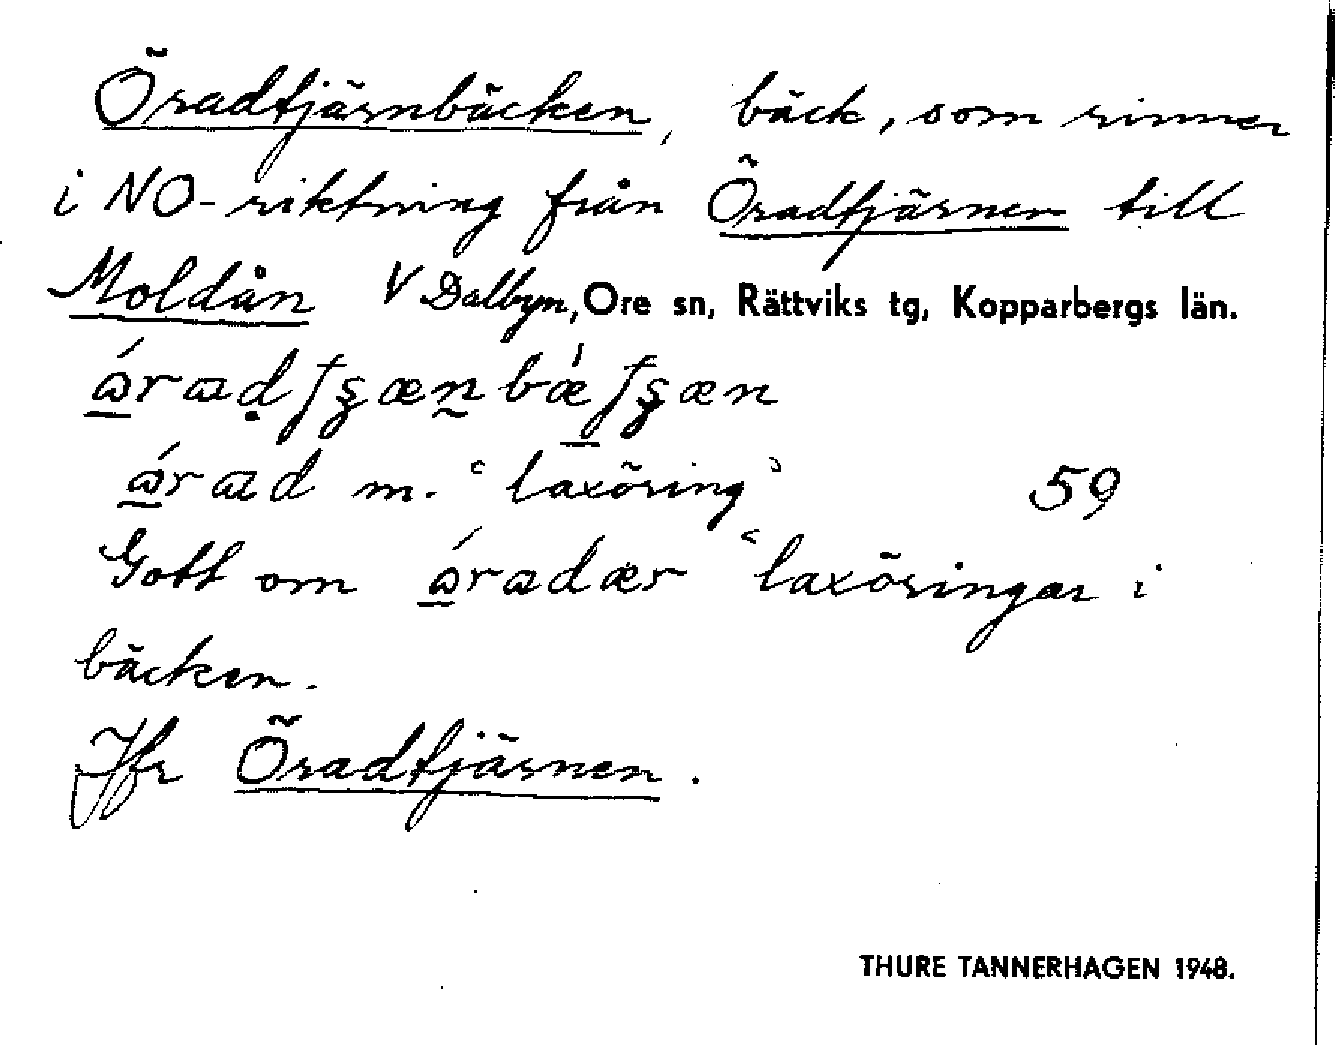 Öradtjärnbäcken, bäck, som rinner
i NO-riktning från Öradtjärnen till
Moldån V Dalbyn, Ore sn, Rättviks tg, Kopparbergs län.
m. ‘laxöring’ 59
Gott om ‘laxöringar i
bäcken.
Jfr Öradtjärnen.
THURE TANNERHAGEN 1948.